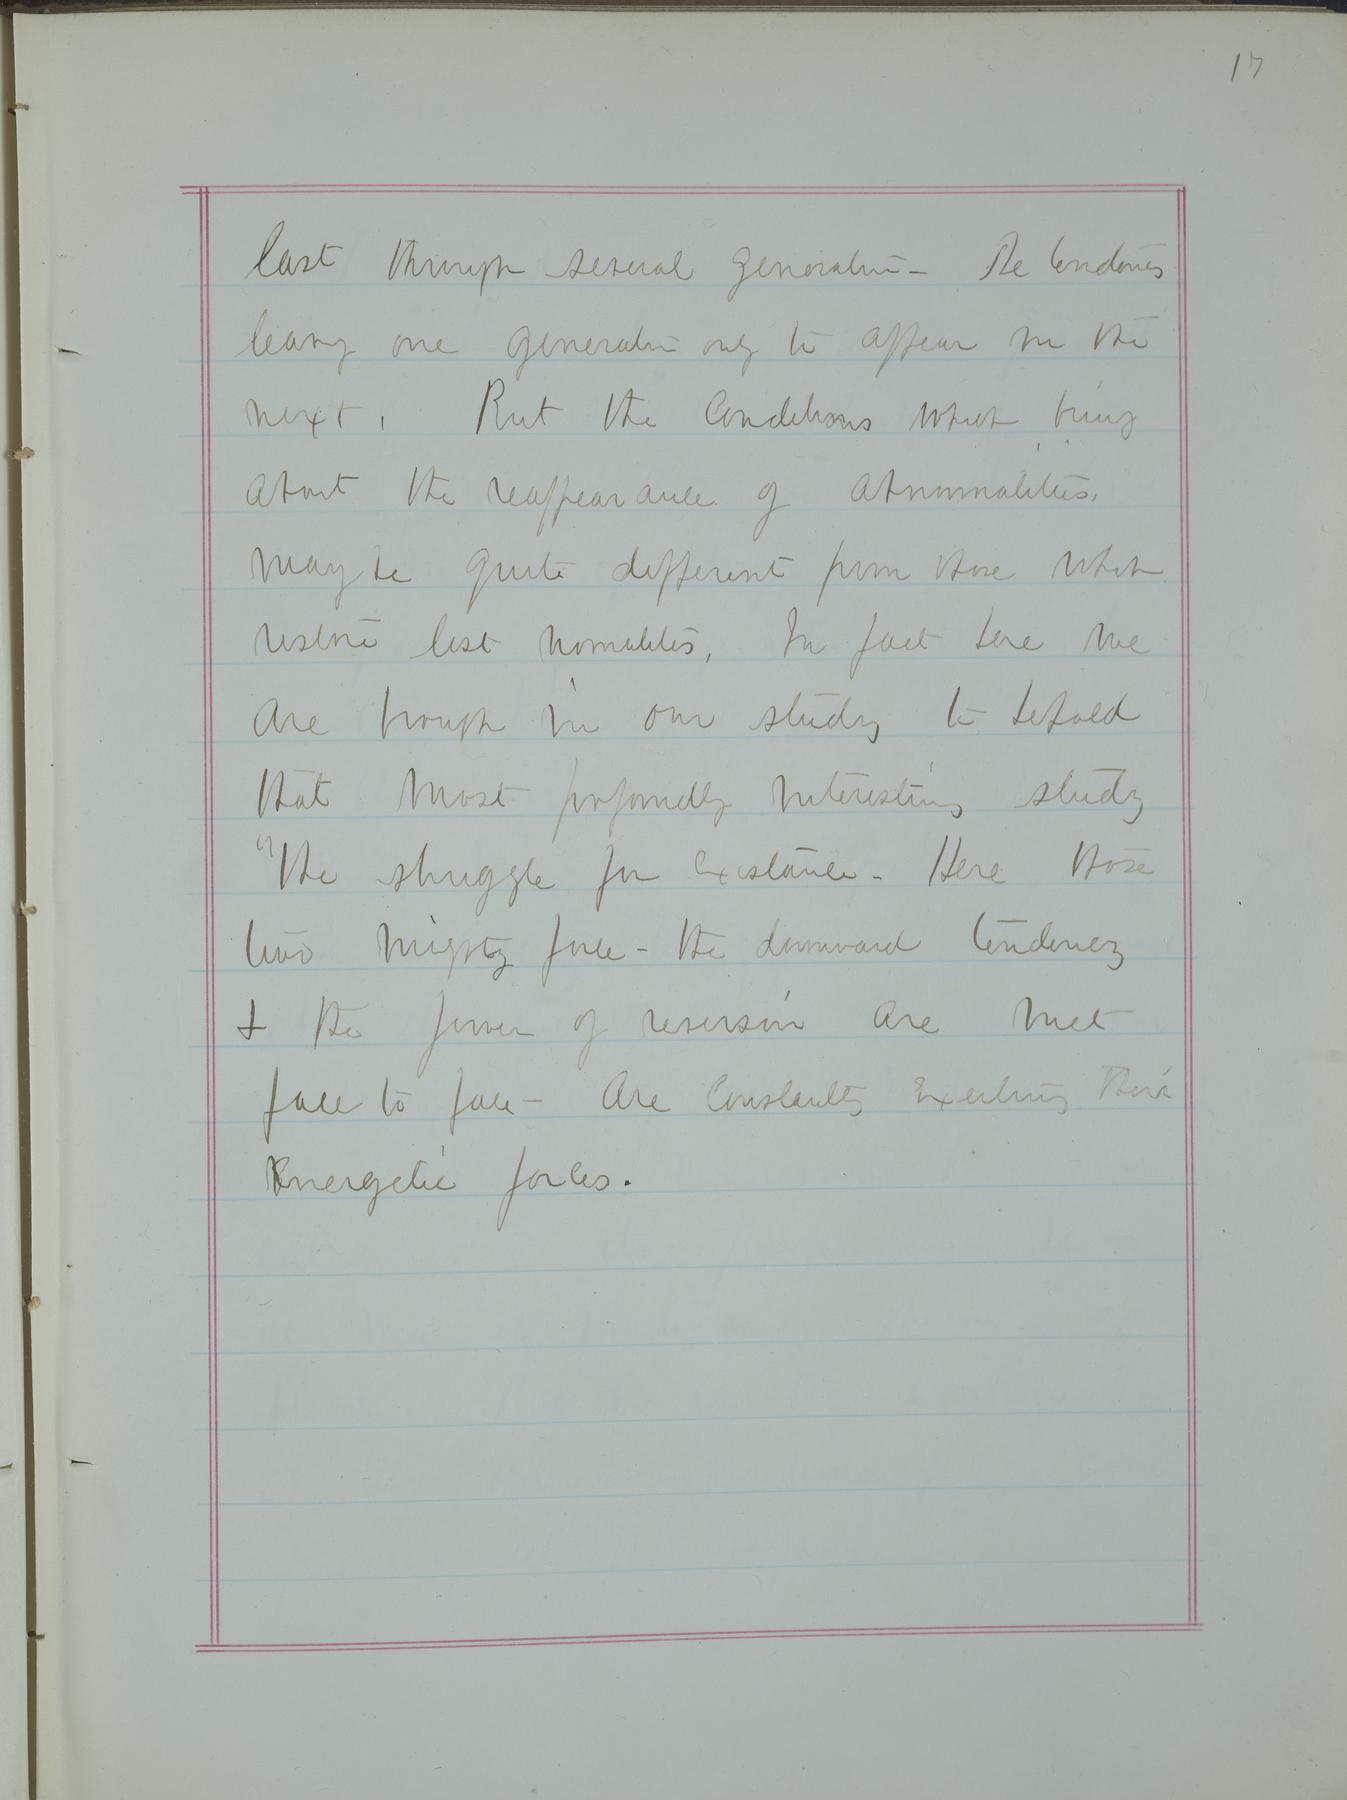 17
last through several generation - The tendencies
leaving one generation only to appear in the
next. But the Conditions which bring
about the reappearance of abnormalities,
may be quite different from those which
restore lost normalities, In fact here we
are brought in our study to behold
that most profoundly interesting study
"The struggle for Existance - Here those
two mighty force - the downward tendency
& the power of reversion are met
face to face - are Constantly Exerting their
Energetic forces.